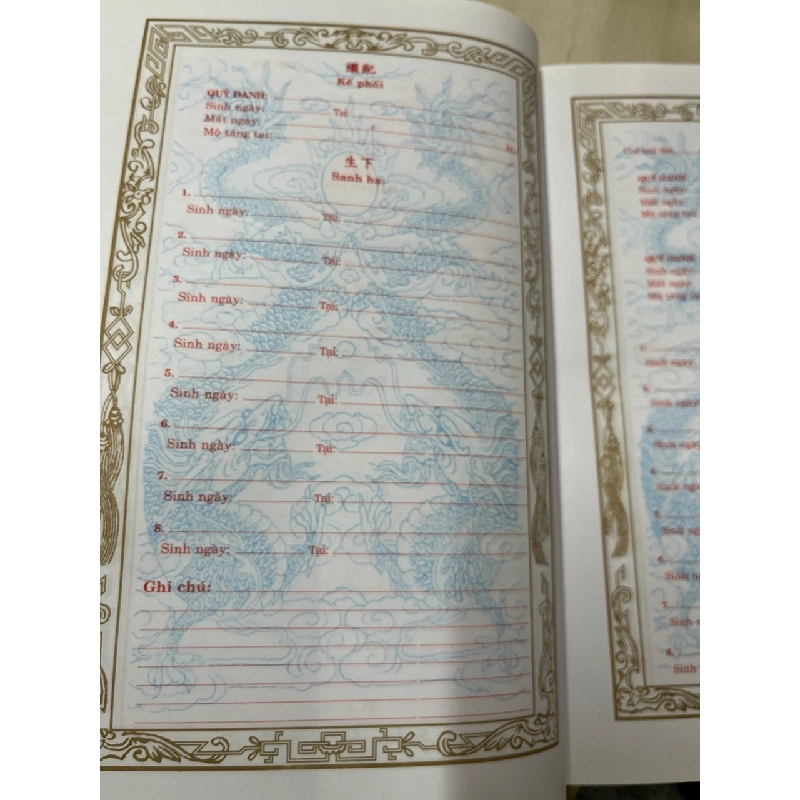 繼配
Kế phối
QUÝ DANH:
Sinh ngày: Tại
Mất ngày:
Mộ táng tại:
生下
Sanh hạ:
1.
Sinh ngày: Tại:
2.
Sinh ngày: Tại:
3.
Sinh ngày: Tại:
4.
Sinh ngày: Tại:
5.
Sinh ngày: Tại:
6.
Sinh ngày: Tại:
7.
Sinh ngày: Tại:
8.
Sinh ngày: Tại:
Ghi chú:
QUÝ DANH
Sinh ngày:
Mất ngày:
Mộ táng tại
QUÝ DANH
Sinh ngày:
Mất ngày:
Mộ táng tại
Sinh ngày:
Sinh ngày
Sinh ngày
Sinh ngày
5.
Sinh ngày
6.
Sinh ngày
7.
Sinh ngày
8.
Sinh